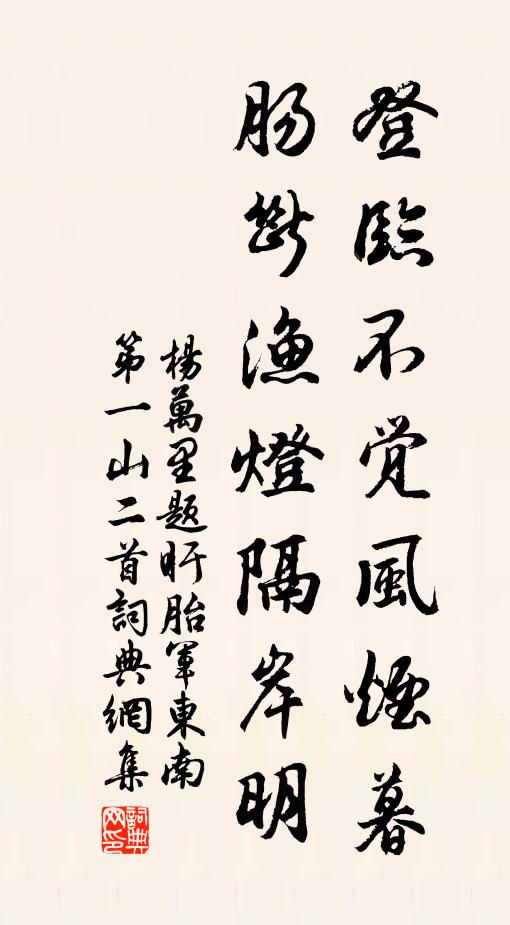 登臨不觉風煙暮
腸斷漁燈隔岸明
楊萬里題盱眙軍東南
第一山二首詞典網集
詞典
网印